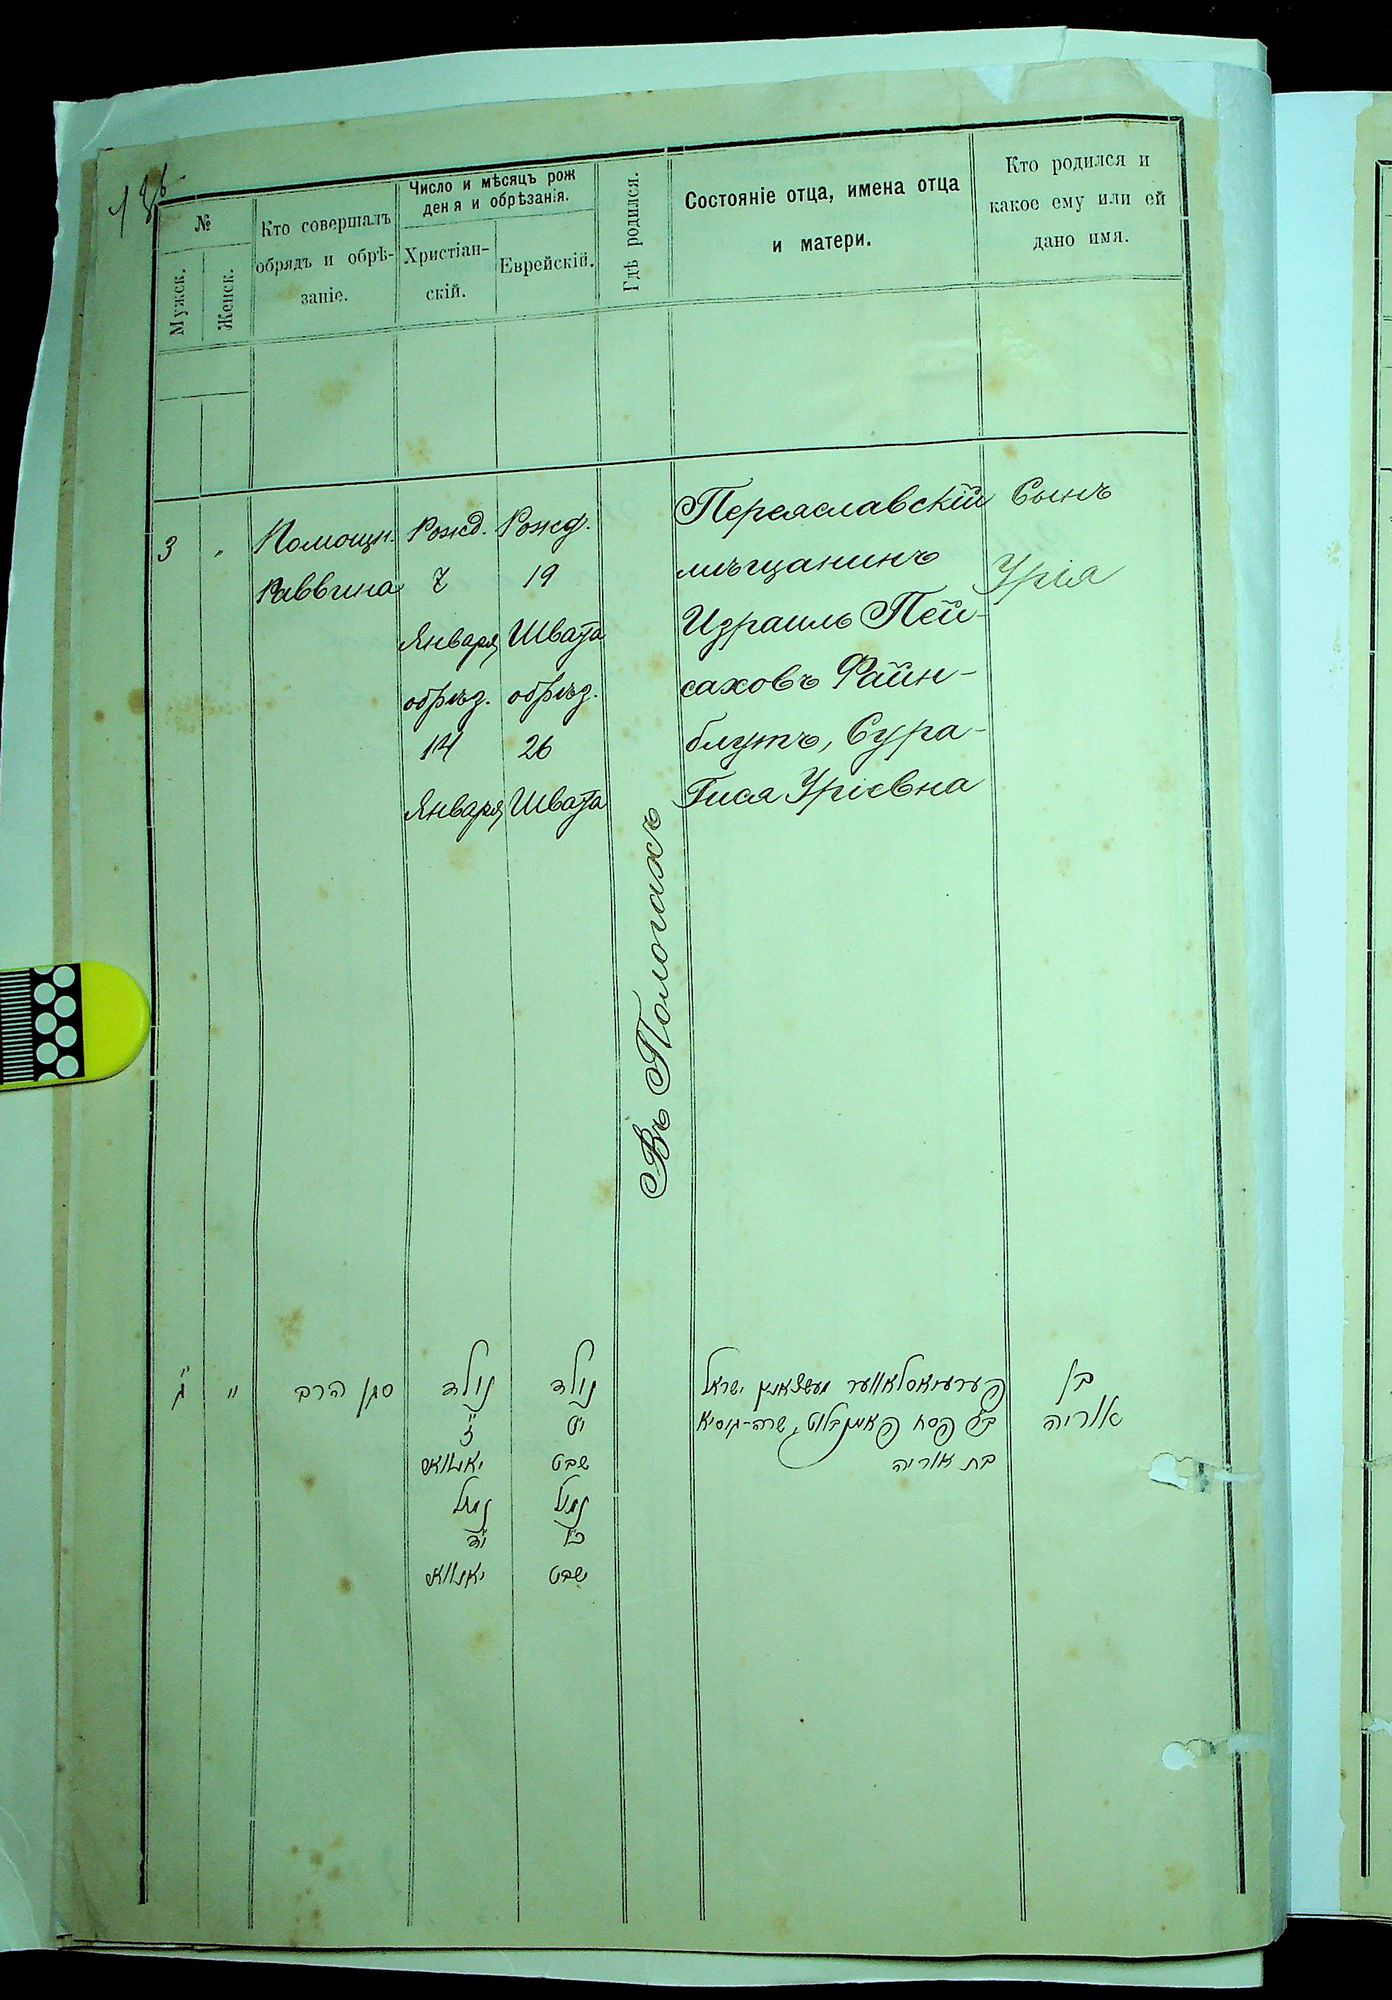 №
Мужск.
Женск.
Кто совершалъ
обрядъ и обрѣ-
заніе.
Число и мѣсяцъ рож
денія и обрѣзанія.
Христіан-
скій.
Еврейскій.
Гдѣ родился.
Состояніе отца, имена отца
и матери.
Кто родился и
какое ему или ей
дано имя.
3
"
Помощн.
Раввина
Рожд.
7
Января
обрѣз.
14
Января
Рожд.
19
Швата
обрѣз.
26
Швата
Въ Пологахъ
Переяславскій
мѣщанинъ
Израиль Пей-
саховъ Файн-
блутъ, Сура-
Гися Уріевна
Сынъ
Урія
ג״
"
סגן הרב
נולד
ז״
יאנוואר
נמול
י״ד
יאנוואר
נולד
י״ט
שבט
נמול
כ״ו
שבט
פערעיאסלאווער מעשצאנין ישראל
פסח פאינבלוט, שרה-גיסיא
בת אוריה
בן
אוריה